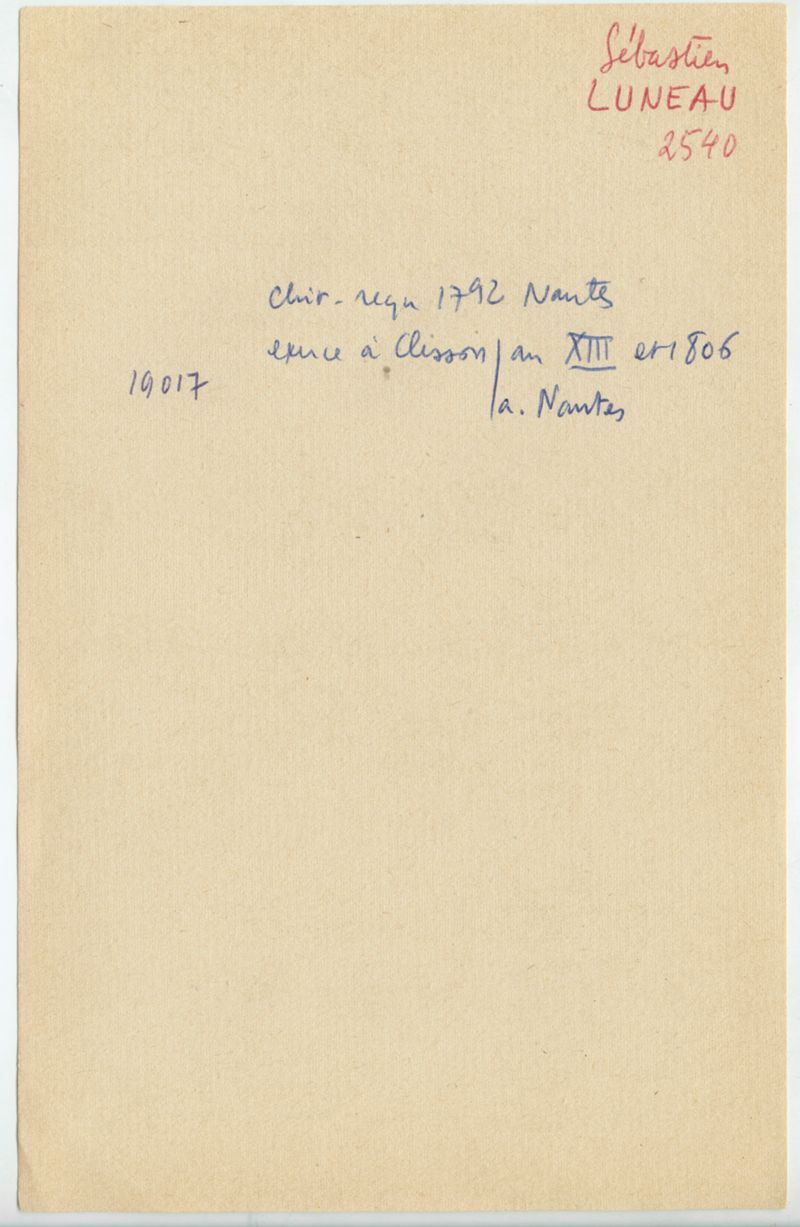 Sébastien
LUNEAU
2540
chir. reçu 1792 Nantes
exerce à Clisson / an XIII et 1806
19017
a. Nantes